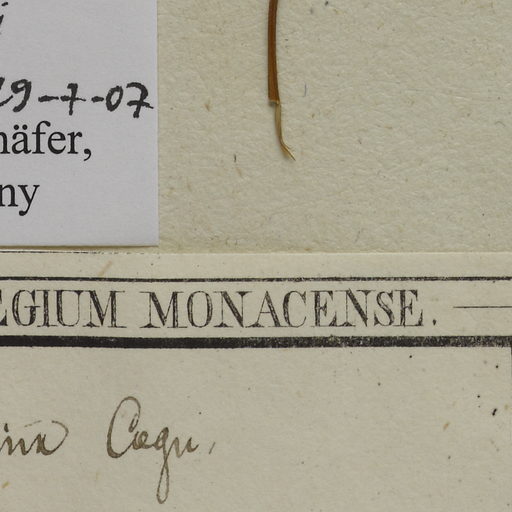 29-7-07
häfer,
ny
EGIUM MONACENSE.
Cogn.